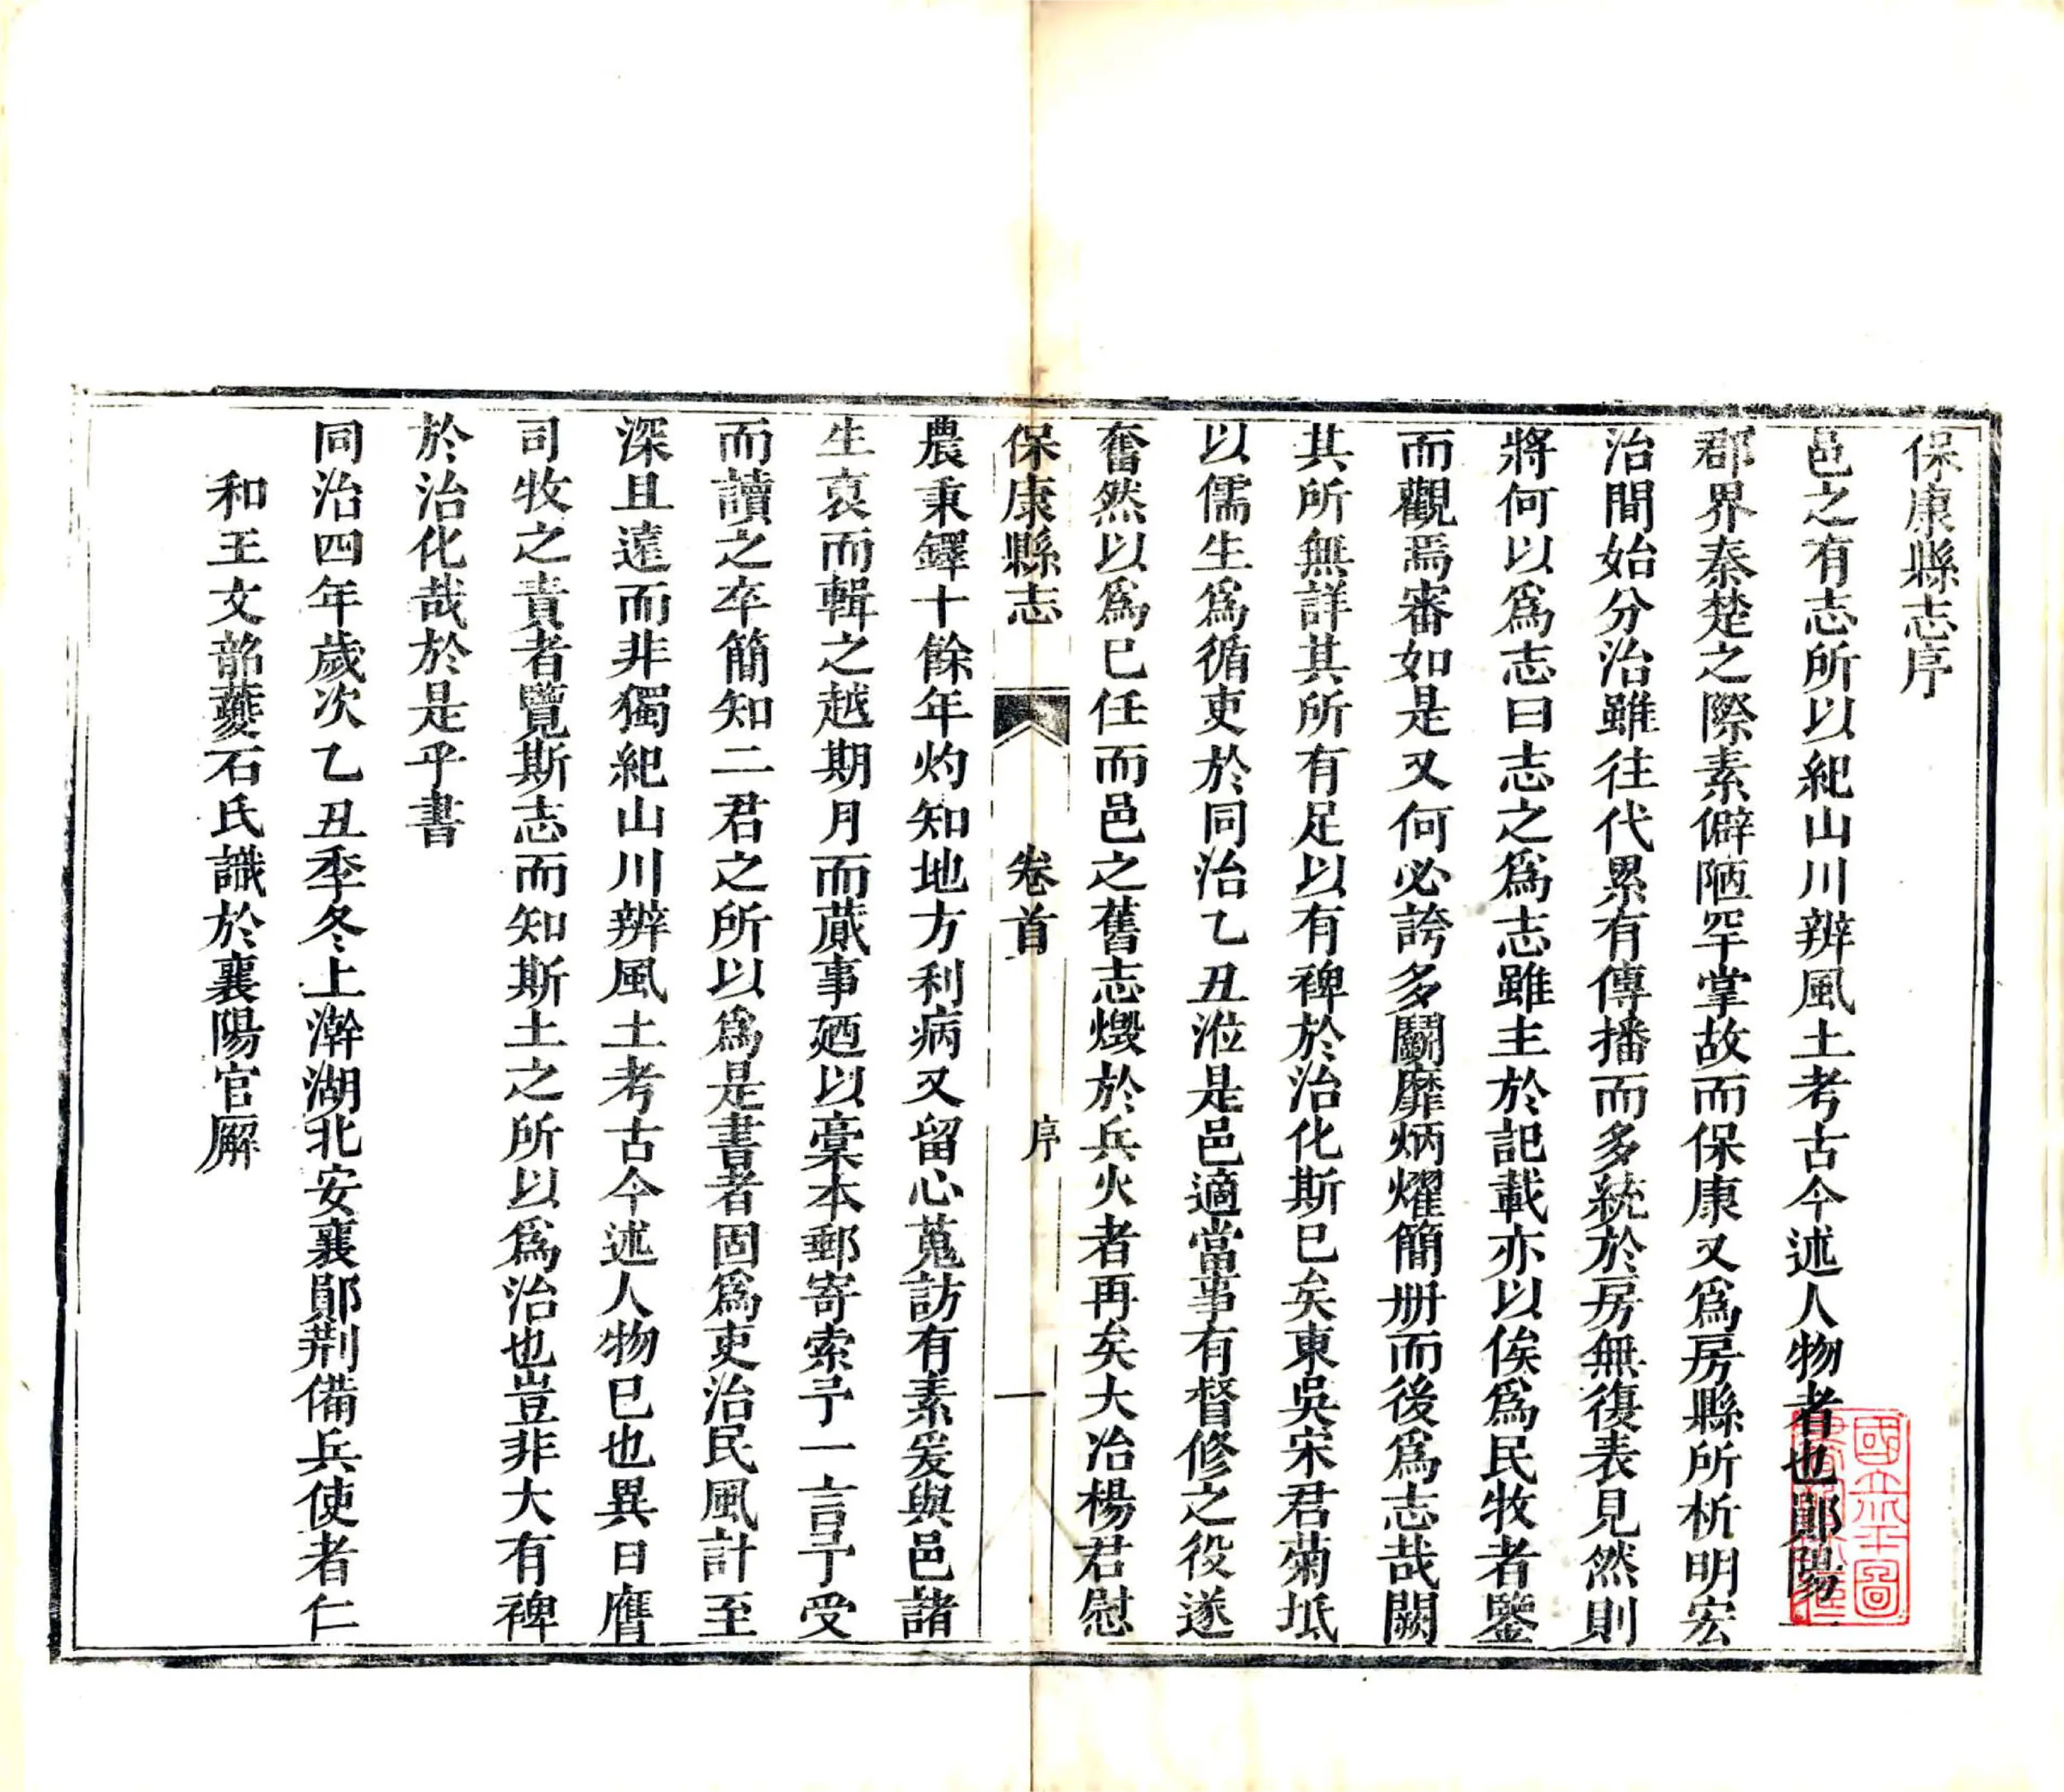 保康縣志序
邑之有志所以紀山川辨風土考古今述人物者也鄖陽一
郡界秦楚之際素僻陋罕掌故而保康又爲房縣所析明宏
治間始分治雖往代累有傳播而多統於房無復表見然則
將何以爲志曰志之爲志雖主於記載亦以俟爲民牧者鑒
而觀焉審如是又何必誇多鬭靡炳燿簡册而後爲志哉闕
其所無詳其所有足以有裨於治化斯已矣東吳宋君菊坻
以儒生爲循吏於同治乙丑涖是邑適當事有督修之役遂
奮然以爲已任而邑之舊志燬於兵火者再矣大冶楊君慰
保康縣志 卷首 序 一
農秉鐸十餘年灼知地方利病又留心蒐訪有素爰與邑諸
生裒而輯之越期月而蕆事廼以稾本郵寄索予一言予受
而讀之卒簡知二君之所以爲是書者固爲吏治民風計至
深且遠而非獨紀山川辨風土考古今述人物已也異日膺
司牧之責者覽斯志而知斯土之所以爲治也豈非大有裨
於治化哉於是乎書
同治四年歲次乙丑季冬上澣湖北安襄鄖荆備兵使者仁
和王文韶夔石氏識於襄陽官廨
國立北平圖